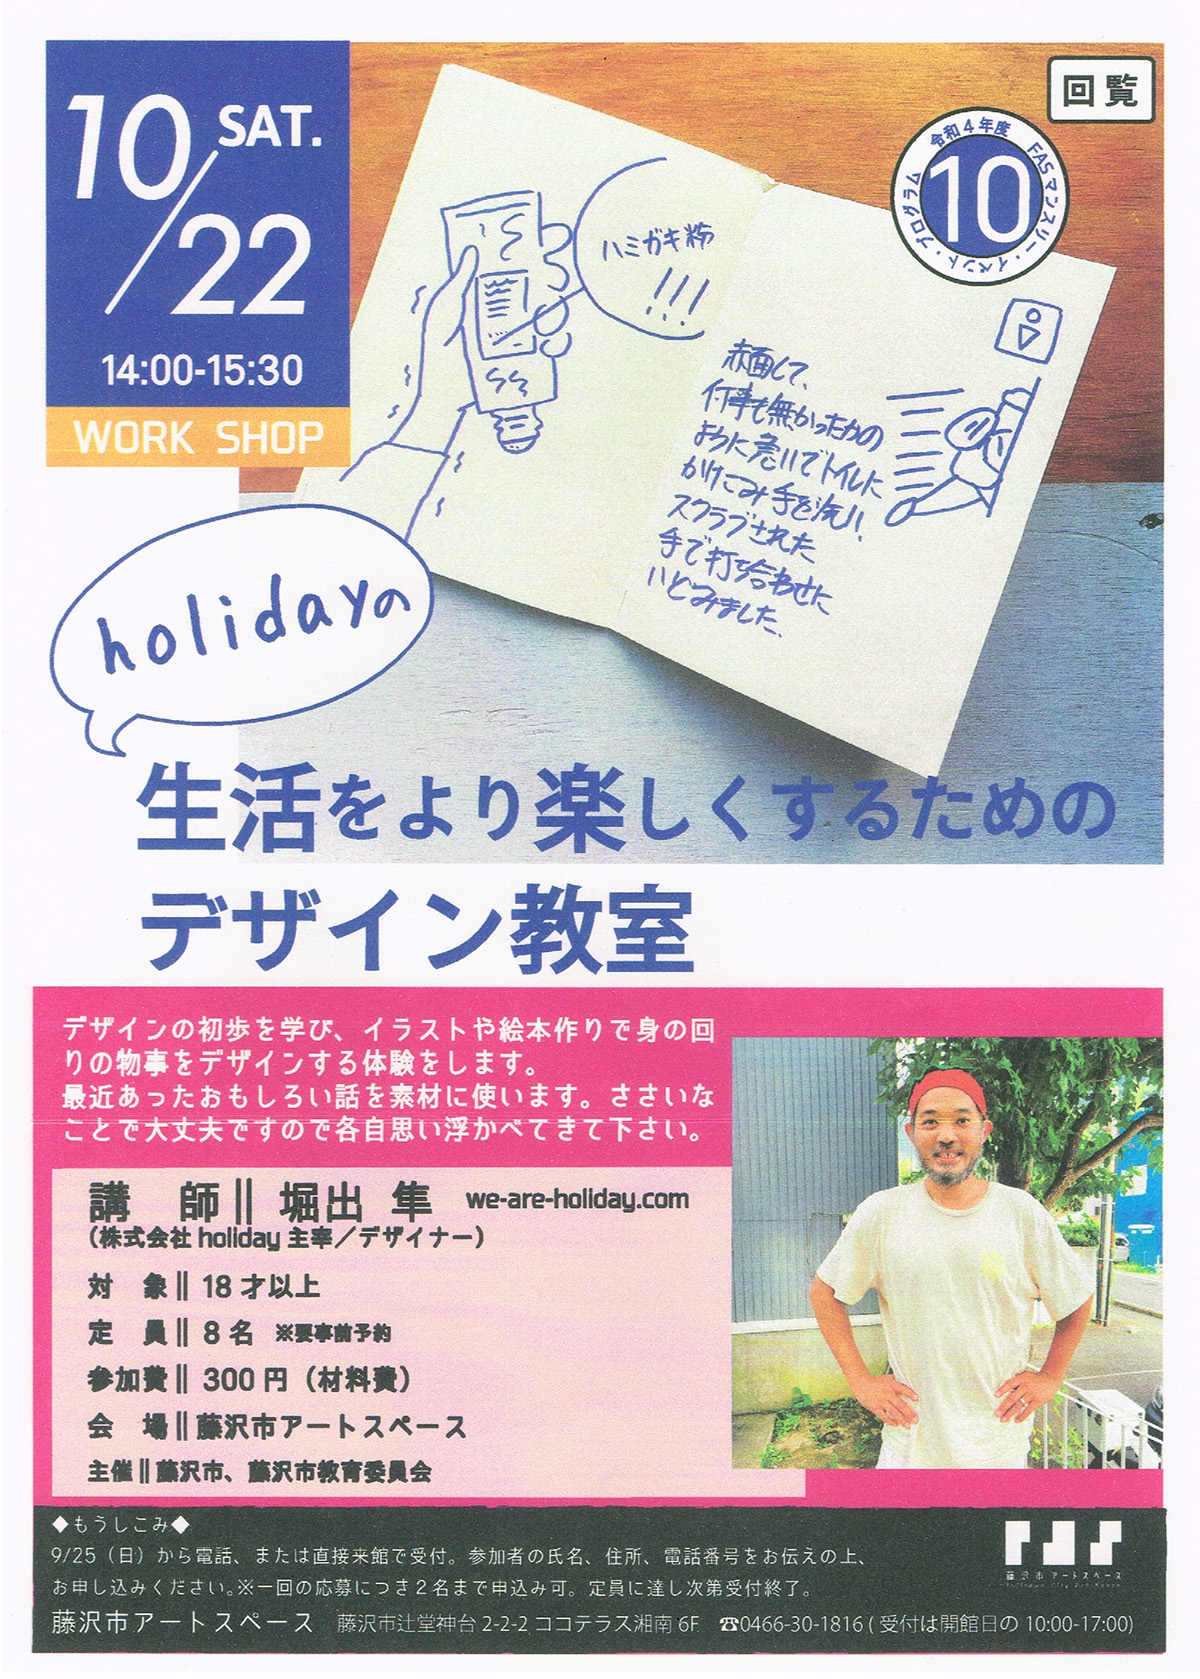 10/22 SAT.
14:00-15:30
WORK SHOP
回覧
令和4年度 FASマンスリー・イベント・プログラム
10
ハミガキ粉
!!!
赤面して、
何事も無かったかの
ように急いでトイレに
かけこみ手を洗い、
スクラブされた
手で打ち合わせに
いどみました。
holidayの
生活をより楽しくするための
デザイン教室
デザインの初歩を学び、イラストや絵本作りで身の回
りの物事をデザインする体験をします。
最近あったおもしろい話を素材に使います。ささいな
ことで大丈夫ですので各自思い浮かべてきて下さい。
講 師‖ 堀出 隼 we-are-holiday.com
(株式会社 holiday 主宰／デザイナー)
対 象‖ 18 才以上
定 員‖ 8 名 ※要事前予約
参加費‖ 300 円（材料費）
会 場‖藤沢市アートスペース
主催‖藤沢市、藤沢市教育委員会
◆もうしこみ◆
9/25（日）から電話、または直接来館で受付。参加者の氏名、住所、電話番号をお伝えの上、
お申し込みください。※一回の応募につき２名まで申込み可。定員に達し次第受付終了。
藤沢市アートスペース 藤沢市辻堂神台 2-2-2 ココテラス湘南 6F ☎0466-30-1816 ( 受付は開館日の 10:00-17:00)
FAS
藤沢市アートスペース
Fujisawa City Art Space